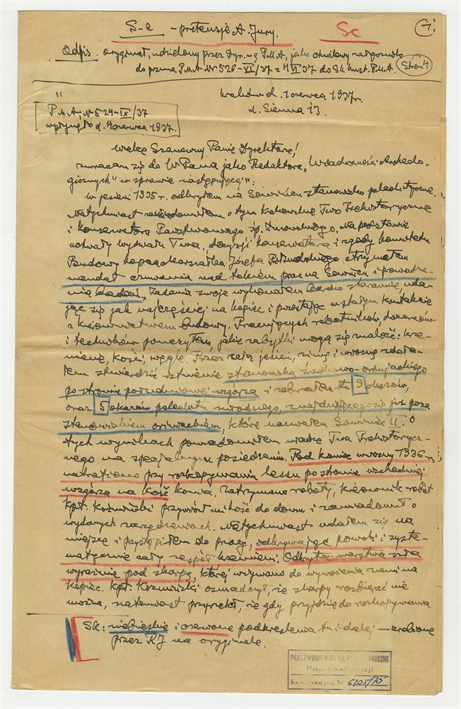 S-c - pretensje A. Jury.
Sc
1.
Odpis. oryginał, udzielony przez Dyr. P.M.A., jako chwilowy załącznik
do pisma P.M.A. Nr 526-VI/37 z 4 VI 37 do Sk. Kust. P.M.A.
Stron 4
Kraków d. 1 czerwca 1937.
ul. Sienna 13.
"
P.M.A. Nr 524-IX/37
wpłynęło d. 4 czerwca 1937.
Wielce Szanowny Panie Dyrektorze!
Zwracam się do WPana jako Redaktora „Wiadomości Archeolo-
gicznych" w sprawie następującej:
W jesieni 1935 r. odkryłem na Sowińcu stanowisko paleolityczne.
Natychmiast zawiadomiłem o tym Krakowskie Two Prehistoryczne
i konserwatora Państwowego śp. Żurowskiego. Na podstawie
uchwały wydziału Twa, decyzji konserwatora i zgody komitetu
Budowy Kopca Marszałka Józefa Piłsudskiego otrzymałem
mandat czuwania nad tokiem prac na Sowińcu i prowadze-
nia badań. Zadania swoje wykonałem bardzo starannie, uda-
jąc się jak najczęściej na kopiec i pozostając w stałym kontakcie
z kierownictwem budowy. Pracujących robotników, dozorców
i techników pouczyłem, jakie zabytki mogą się znaleźć: krze-
mienie, kości, węgle. Przez całą jesień, zimę i wiosnę zdoła-
łem stwierdzić istnienie stanowiska środk.-oryniackiego
po stronie południowej wzgórza i zebrałem 9 okazów,
oraz 5 okazów paleolitu młodszego, znajdującego się już poza
stanowiskiem oryniackim, które nazwałem Sowiniec II. O
tych wynikach powiadomiłem władze Twa Prehistorycz-
nego na specjalnym posiedzeniu. Pod koniec wiosny 1936 r.
natrafiono przy rozkopywaniu lessu po stronie wschodniej
wzgórza na kość konia. Zatrzymano roboty, kierownik robót
kpt. Kozmiński przywiózł mi kość do domu i zawiadomił o
wydanych zarządzeniach. Natychmiast udałem się na
miejsce i przystąpiłem do pracy, odkrywając powoli i syste-
matycznie cały zespół krzemieni. Odkryta warstwa szła
wyraźnie pod skarpę, której używano do wywożenia ziemi na
kopiec. Kpt. Kozmiński oznajmił, że skarpy rozbierać nie
można, natomiast przyrzekł, że gdy przyjdzie do rozkopywania
Sk: niebieskie i czerwone podkreślenia tu i dalej - zrobione
przez RJ na oryginale.
PAŃSTWOWE MUZEUM ARCHEOLOGICZNE
6125/75